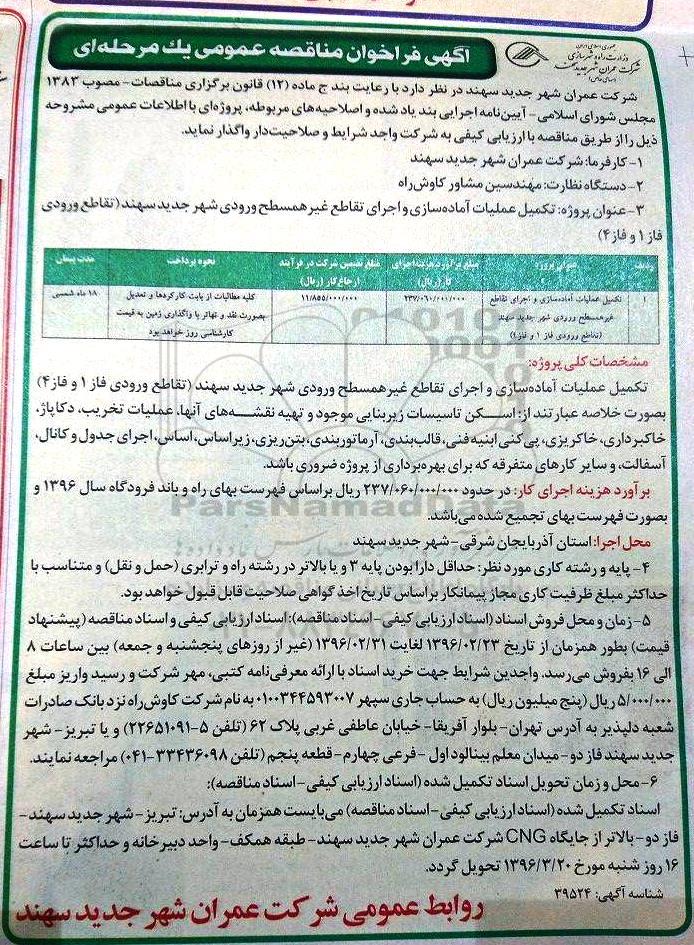 جمهوری اسلامی ایران
وزارت راه و شهرسازی
شرکت عمران شهر جدید سهند
(سهامی خاص)
آگهی فراخوان مناقصه عمومی یك مرحله‌ای
شرکت عمران شهر جدید سهند در نظر دارد با رعایت بند ج ماده (۱۲) قانون برگزاری مناقصات- مصوب ۱۳۸۳
مجلس شورای اسلامی- آیین‌نامه اجرایی بند یاد شده و اصلاحیه‌های مربوطه، پروژه‌ای با اطلاعات عمومی مشروحه
ذیل را از طریق مناقصه با ارزیابی کیفی به شرکت واجد شرایط و صلاحیت‌دار واگذار نماید.
۱- کارفرما: شرکت عمران شهر جدید سهند
۲- دستگاه نظارت: مهندسین مشاور کاوش‌راه
۳- عنوان پروژه: تکمیل عملیات آماده‌سازی و اجرای تقاطع غیرهمسطح ورودی شهر جدید سهند (تقاطع ورودی
فاز ۱ و فاز ۴)
ردیف عنوان پروژه مبلغ برآورد هزینه اجرای کار (ریال) مبلغ تضمین شرکت در فرآیند ارجاع کار (ریال) نحوه پرداخت مدت پیمان
۱ تکمیل عملیات آماده‌سازی و اجرای تقاطع ۲۳۷/۰۶۰/۰۰۰/۰۰۰ ۱۱/۸۵۵/۰۰۰/۰۰۰ کلیه مطالبات از بابت کارکردها و تعدیل ۱۸ ماه شمسی
غیرهمسطح ورودی شهر جدید سهند بصورت نقد و تهاتر با واگذاری زمین به قیمت
(تقاطع ورودی فاز ۱ و فاز ۴) کارشناسی روز خواهد بود
مشخصات کلی پروژه:
تکمیل عملیات آماده‌سازی و اجرای تقاطع غیرهمسطح ورودی شهر جدید سهند (تقاطع ورودی فاز ۱ و فاز ۴)
بصورت خلاصه عبارتند از: اسکن تاسیسات زیربنایی موجود و تهیه نقشه‌های آنها، عملیات تخریب، دکاپاژ،
خاکبرداری، خاکریزی، پی‌کنی ابنیه فنی، قالب‌بندی، آرماتوربندی، بتن‌ریزی، زیراساس، اساس، اجرای جدول و کانال،
آسفالت، و سایر کارهای متفرقه که برای بهره‌برداری از پروژه ضروری باشد.
برآورد هزینه اجرای کار: در حدود ۲۳۷/۰۶۰/۰۰۰/۰۰۰ ریال براساس فهرست بهای راه و باند فرودگاه سال ۱۳۹۶ و
بصورت فهرست بهای تجمیع شده می‌باشد.
ParsNamadData
محل اجرا: استان آذربایجان شرقی- شهر جدید سهند
۴- پایه و رشته کاری مورد نظر: حداقل دارا بودن پایه ۳ و یا بالاتر در رشته راه و ترابری (حمل و نقل) و متناسب با
حداکثر مبلغ ظرفیت کاری مجاز پیمانکار براساس تاریخ اخذ گواهی صلاحیت قابل قبول خواهد بود.
۵- زمان و محل فروش اسناد (اسناد ارزیابی کیفی- اسناد مناقصه): اسناد ارزیابی کیفی و اسناد مناقصه (پیشنهاد
قیمت) بطور همزمان از تاریخ ۱۳۹۶/۰۲/۲۳ لغایت ۱۳۹۶/۰۲/۳۱ (غیر از روزهای پنجشنبه و جمعه) بین ساعات ۸
الی ۱۶ بفروش می‌رسد. واجدین شرایط جهت خرید اسناد با ارائه معرفی‌نامه کتبی، مهر شرکت و رسید واریز مبلغ
۵/۰۰۰/۰۰۰ ریال (پنج میلیون ریال) به حساب جاری سپهر ۰۱۰۰۳۴۴۵۹۳۰۰۷ به نام شرکت کاوش‌راه نزد بانک صادرات
شعبه دلپذیر به آدرس تهران- بلوار آفریقا- خیابان عاطفی غربی پلاک ۶۲ (تلفن ۵-۲۲۶۵۱۰۹۱) و یا تبریز- شهر
جدید سهند فاز دو- میدان معلم بینالود اول- فرعی چهارم- قطعه پنجم (تلفن ۳۳۴۳۶۰۹۸-۰۴۱) مراجعه نمایند.
۶- محل و زمان تحویل اسناد تکمیل شده (اسناد ارزیابی کیفی- اسناد مناقصه):
اسناد تکمیل شده (اسناد ارزیابی کیفی- اسناد مناقصه) می‌بایست همزمان به آدرس: تبریز- شهر جدید سهند-
فاز دو- بالاتر از جایگاه CNG شرکت عمران شهر جدید سهند- طبقه همکف- واحد دبیرخانه و حداکثر تا ساعت
۱۶ روز شنبه مورخ ۱۳۹۶/۳/۲۰ تحویل گردد.
شناسه آگهی: ۳۹۵۲۴
روابط عمومی شرکت عمران شهر جدید سهند